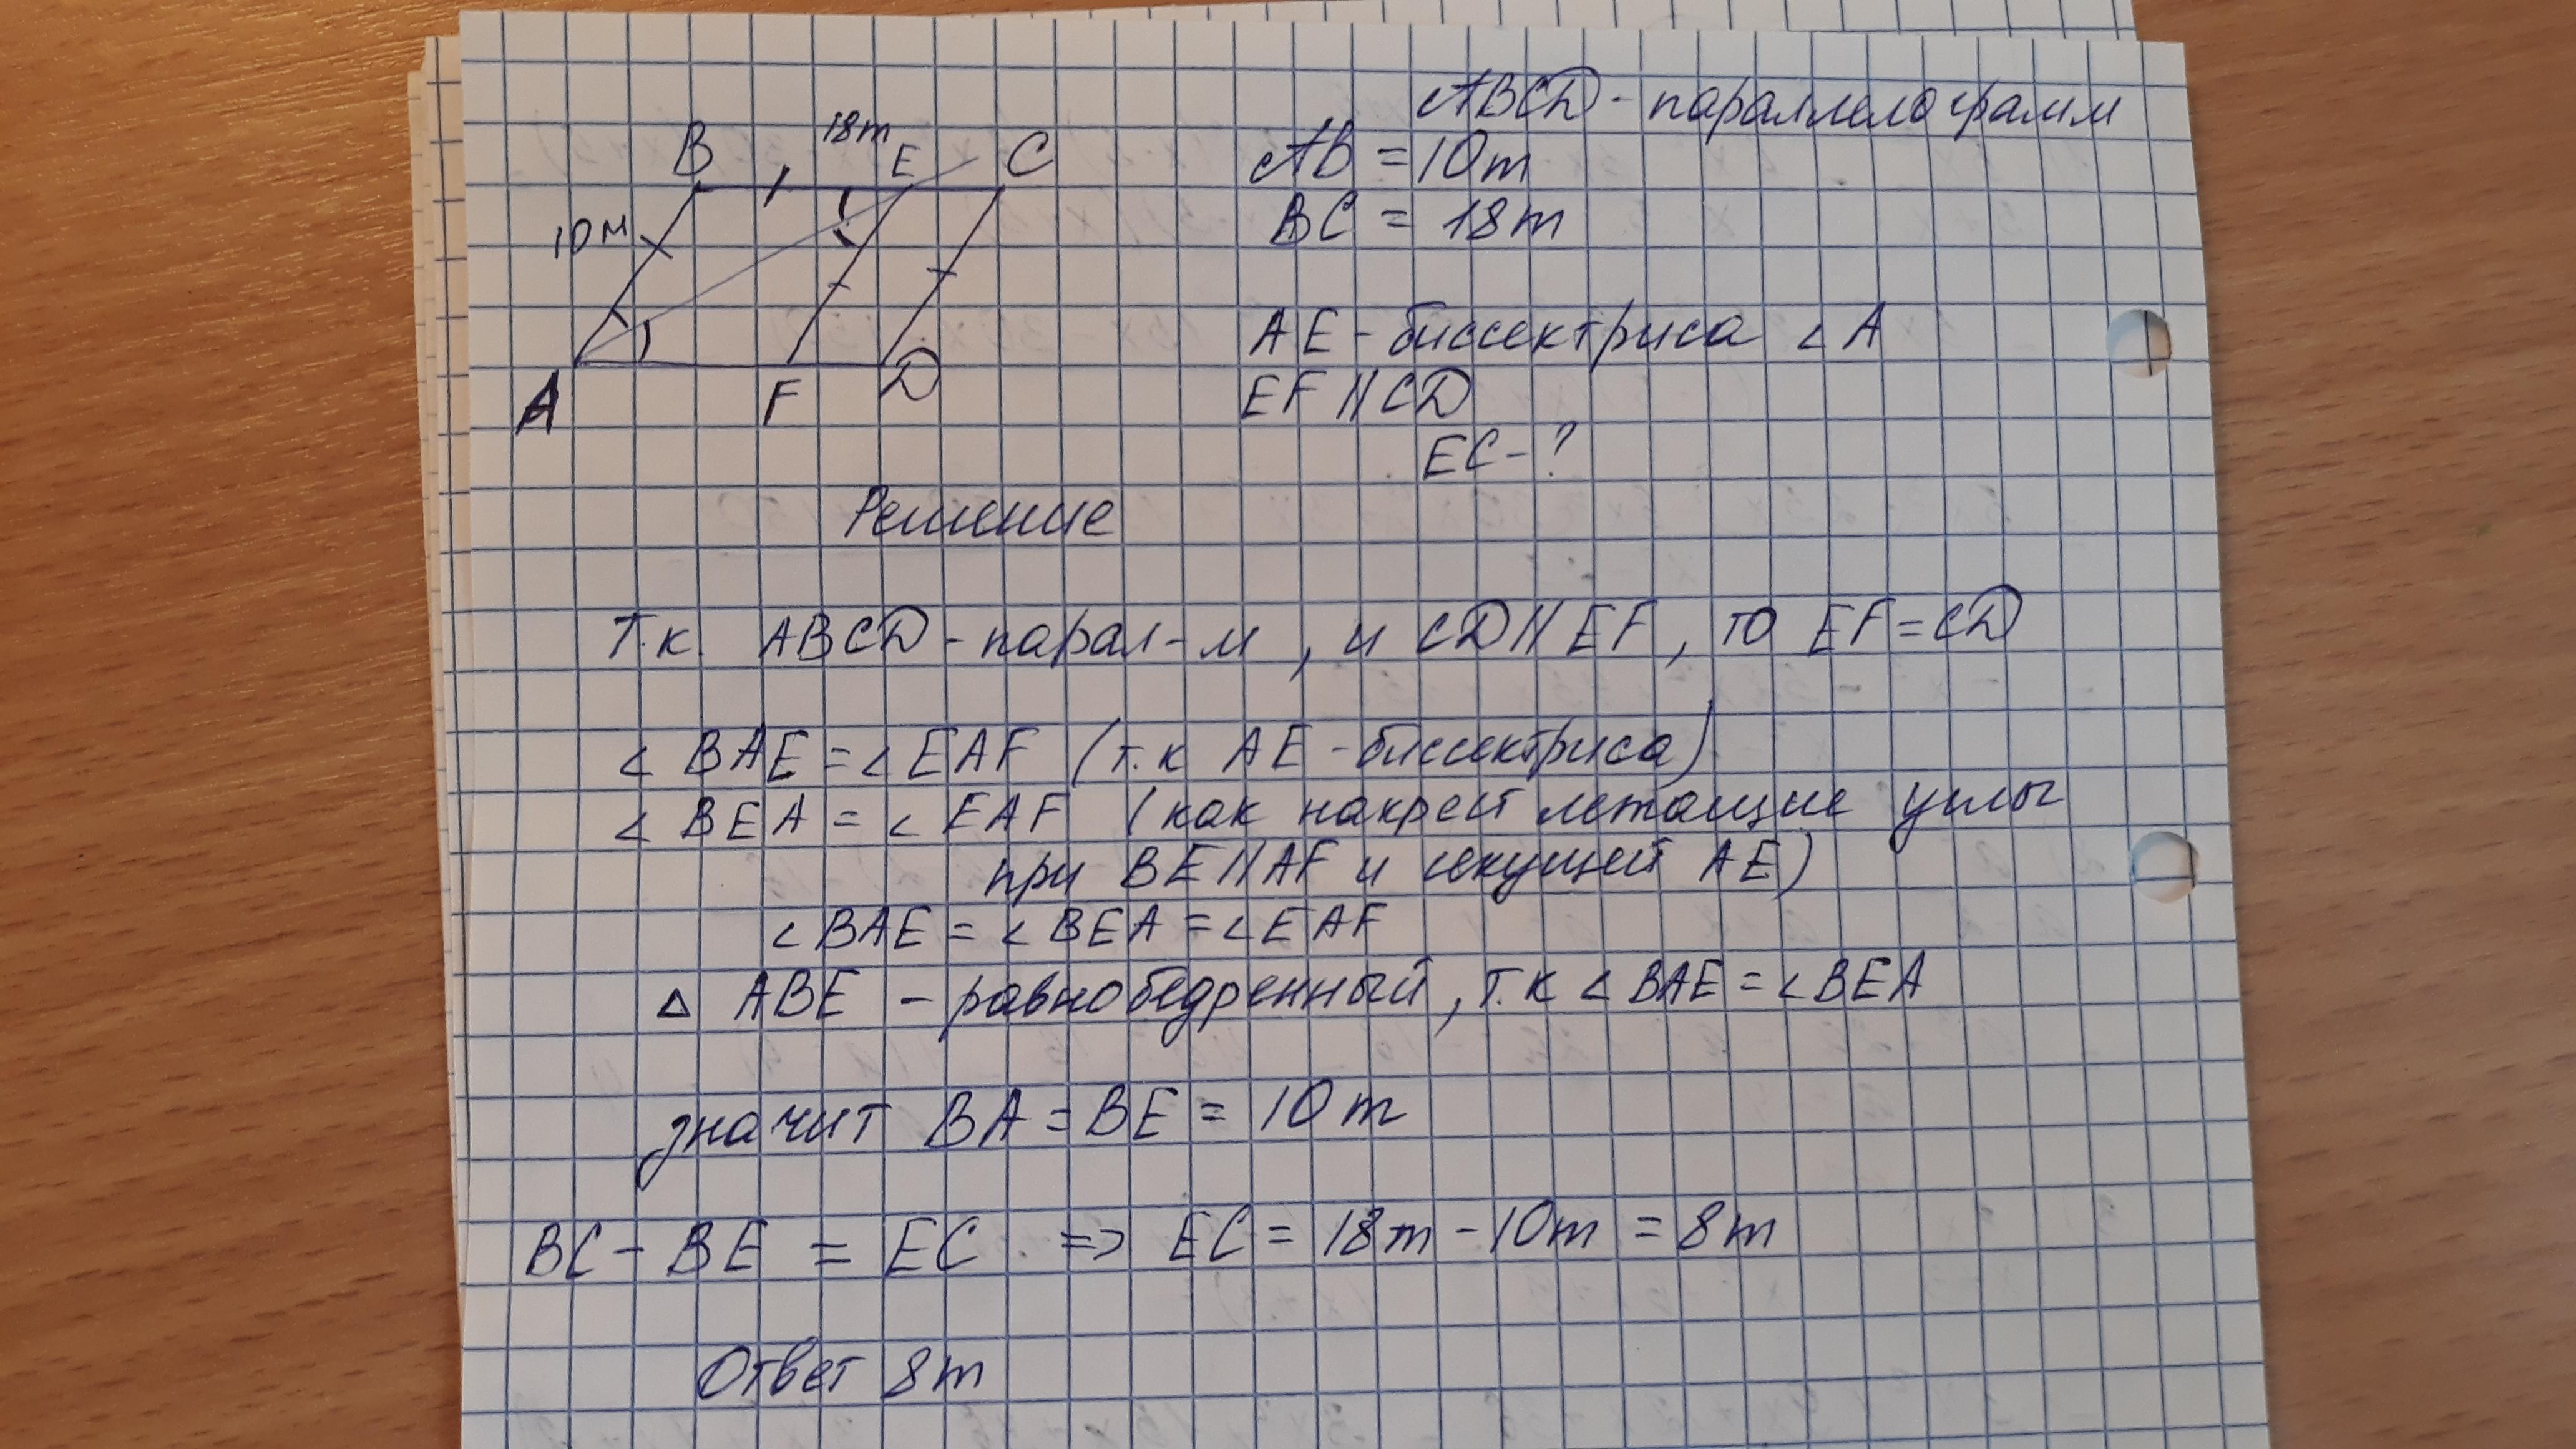 ABCD - параллелограмм
B 18m E C
10м
A F D
AB = 10m
BC = 18m
AE - биссектриса ∠A
EF || CD
EC - ?
Решение
Т.к. ABCD - парал-м, и CD || EF, то EF = CD
∠ BAE = ∠ EAF (т.к AE - биссектриса)
∠ BEA = ∠ EAF (как накрест лежащие углы
при BE || AF и секущей AE)
∠ BAE = ∠ BEA = ∠ EAF
△ ABE - равнобедренный, т.к ∠ BAE = ∠ BEA
значит BA = BE = 10m
BC - BE = EC => EC = 18m - 10m = 8m
Ответ 8m